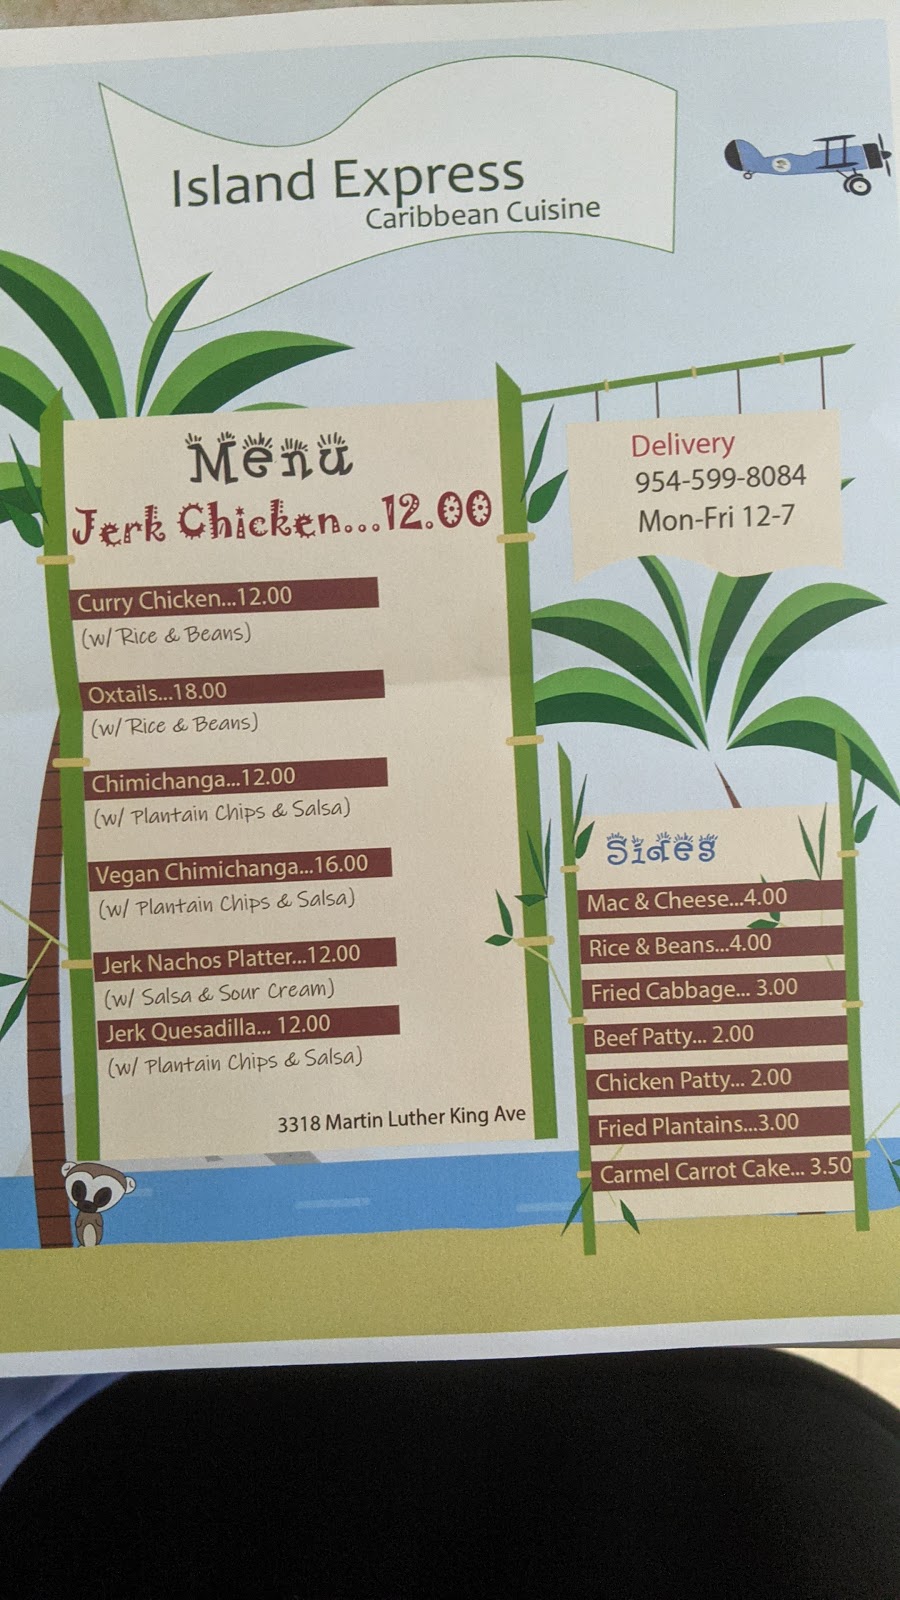 Island Express
Caribbean Cuisine
Menu
Jerk Chicken...12.00
Curry Chicken...12.00
(w/ Rice & Beans)
Oxtails...18.00
(w/ Rice & Beans)
Chimichanga...12.00
(w/ Plantain Chips & Salsa)
Vegan Chimichanga...16.00
(w/ Plantain Chips & Salsa)
Jerk Nachos Platter...12.00
(w/ Salsa & Sour Cream)
Jerk Quesadilla... 12.00
(w/ Plantain Chips & Salsa)
3318 Martin Luther King Ave
Delivery
954-599-8084
Mon-Fri 12-7
Sides
Mac & Cheese...4.00
Rice & Beans...4.00
Fried Cabbage... 3.00
Beef Patty... 2.00
Chicken Patty... 2.00
Fried Plantains...3.00
Carmel Carrot Cake... 3.50